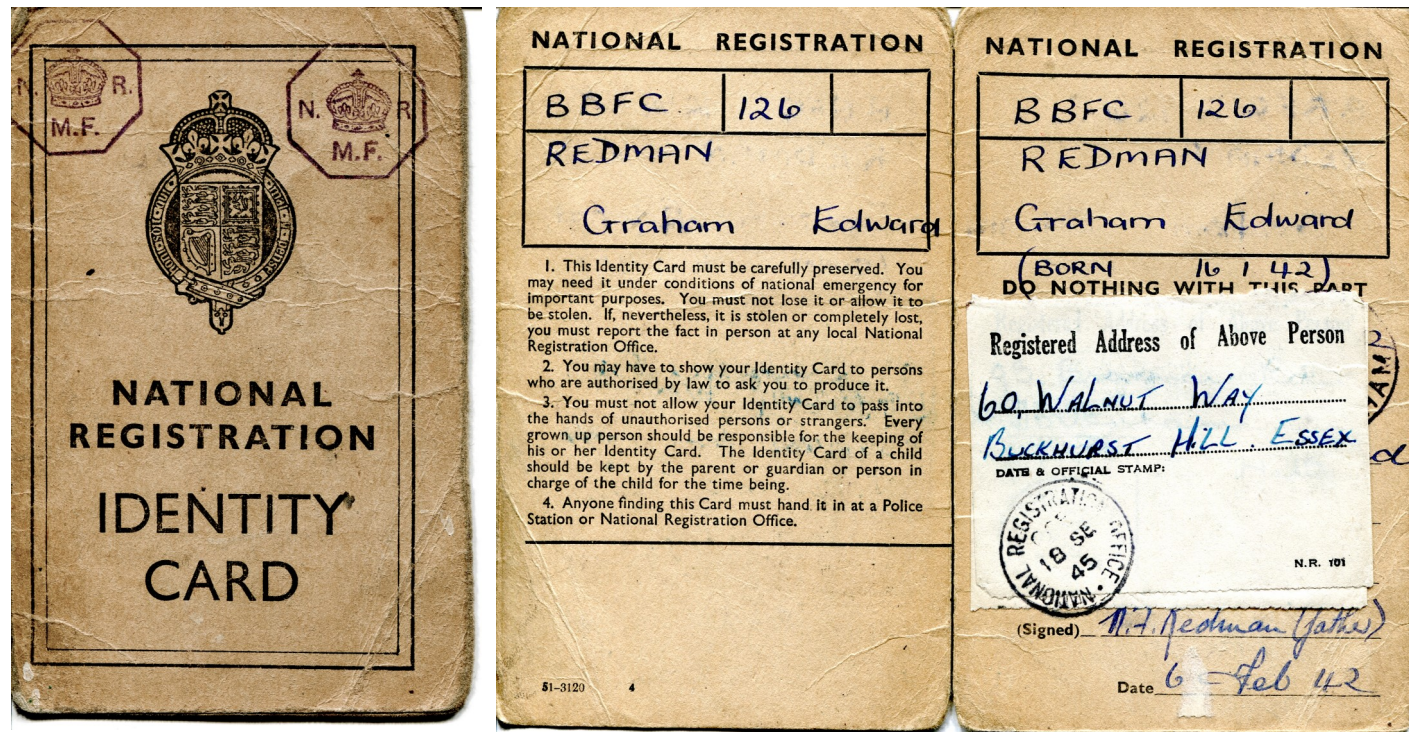 N. R.
M.F.
N. R.
M.F.
NATIONAL
REGISTRATION
IDENTITY
CARD
NATIONAL REGISTRATION
BBFC 126
REDMAN
Graham Edward
1. This Identity Card must be carefully preserved. You
may need it under conditions of national emergency for
important purposes. You must not lose it or allow it to
be stolen. If, nevertheless, it is stolen or completely lost,
you must report the fact in person at any local National
Registration Office.
2. You may have to show your Identity Card to persons
who are authorised by law to ask you to produce it.
3. You must not allow your Identity Card to pass into
the hands of unauthorised persons or strangers. Every
grown up person should be responsible for the keeping of
his or her Identity Card. The Identity Card of a child
should be kept by the parent or guardian or person in
charge of the child for the time being.
4. Anyone finding this Card must hand it in at a Police
Station or National Registration Office.
51-3120 4
NATIONAL REGISTRATION
BBFC 126
REDMAN
Graham Edward
(BORN 16 1 42)
DO NOTHING WITH THIS PART
Registered Address of Above Person
60, WALNUT WAY
BUCKHURST HILL. ESSEX
DATE & OFFICIAL STAMP:
NATIONAL REGISTRATION OFFICE
18 SE
45
N.R. 101
(Signed) Redman (father)
Date 6 - Feb 42